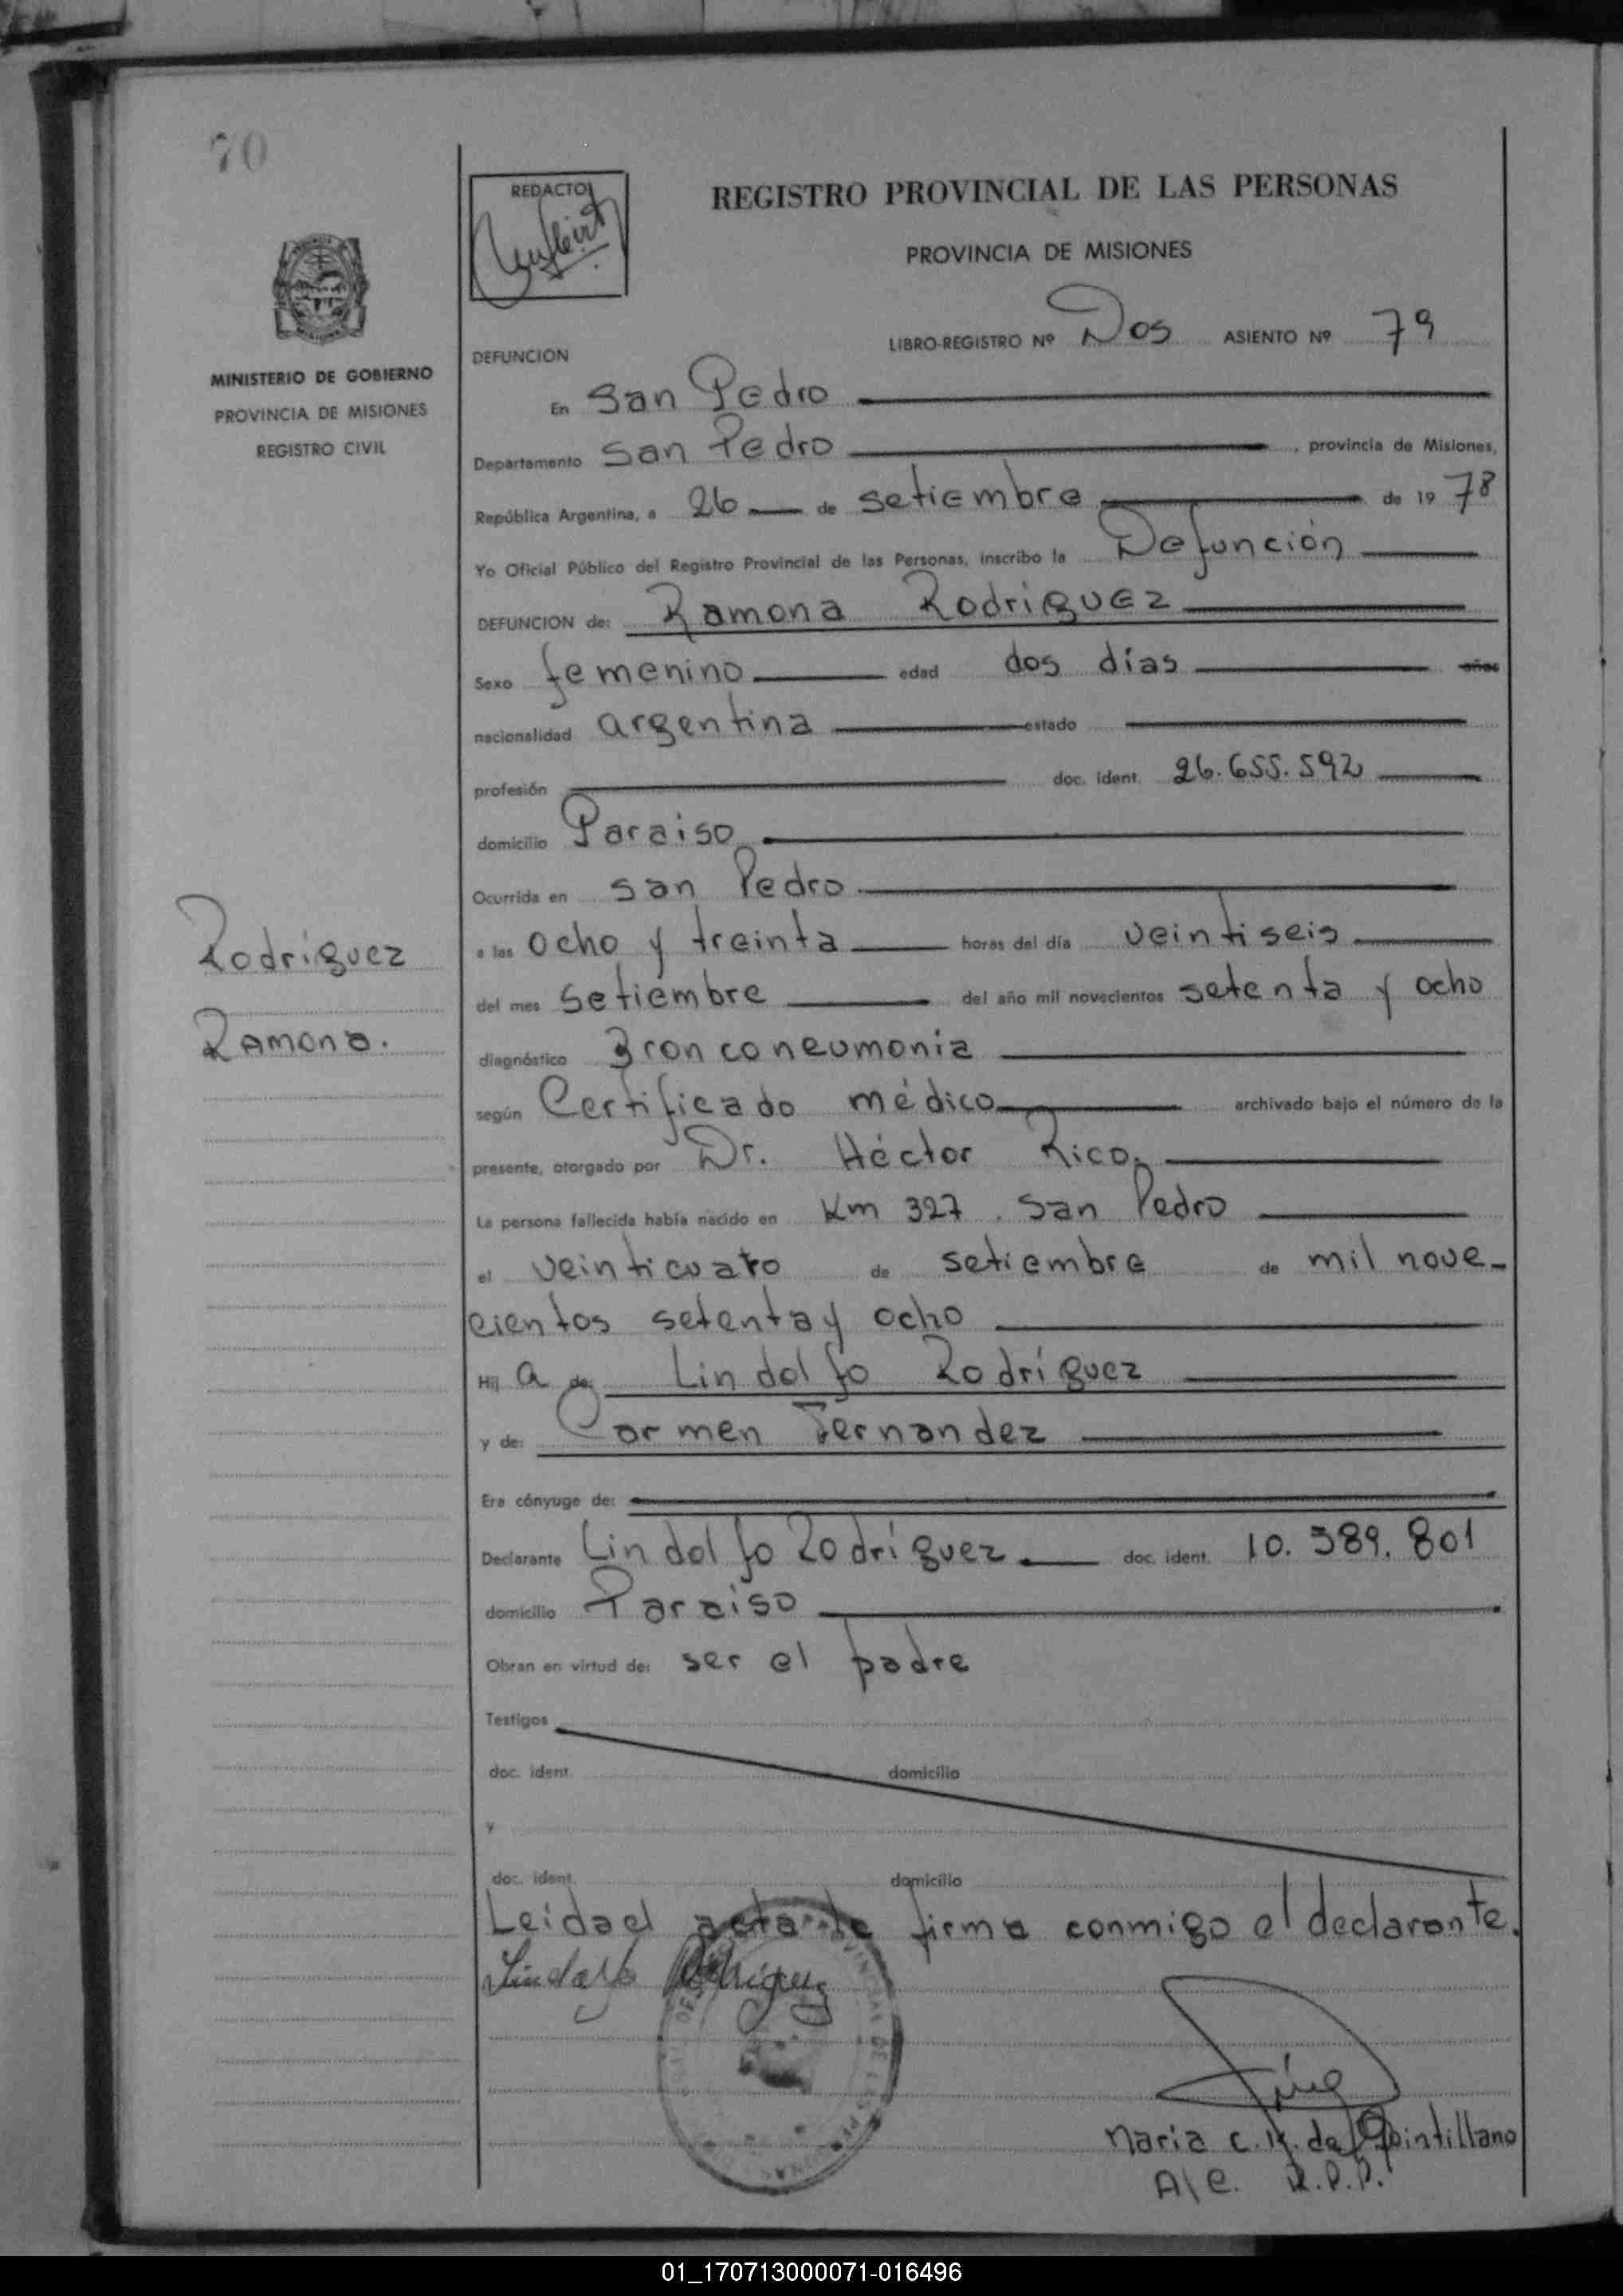 70
REDACTOR
REGISTRO PROVINCIAL DE LAS PERSONAS
PROVINCIA DE MISIONES
LIBRO-REGISTRO Nº Dos ASIENTO Nº 79
MINISTERIO DE GOBIERNO
PROVINCIA DE MISIONES
REGISTRO CIVIL
DEFUNCION
En San Pedro
Departamento San Pedro, provincia de Misiones,
República Argentina, a 26 de setiembre de 1978
Yo Oficial Público del Registro Provincial de las Personas, inscribo la Defunción
DEFUNCION de: Ramona Rodriguez
Sexo femenino edad dos días años
nacionalidad argentina estado
profesión doc. ident. 26.655.592
domicilio Paraiso
Ocurrida en San Pedro
a las ocho y treinta horas del día veintiseis
del mes setiembre del año mil novecientos setenta y ocho
diagnóstico Bronconeumonia
según Certificado médico archivado bajo el número de la
presente, otorgado por Dr. Héctor Rico.
La persona fallecida había nacido en Km 327. San Pedro
el veinticuatro de setiembre de mil nove-
cientos setenta y ocho
Hij a de: Lindolfo Rodríguez
y de: Carmen Fernandez
Era cónyuge de:
Declarante Lindolfo Rodríguez doc. ident. 10.389.801
domicilio Paraiso
Obran en virtud de: ser el padre
Testigos
doc. ident. domicilio
y
doc. ident. domicilio
Leida el acta la firma conmigo el declarante.
Lindolfo Rodriguez
Maria C. K. de Quintillano
A/C. R.P.P.
Rodríguez
Ramona.
01_170713000071-016496